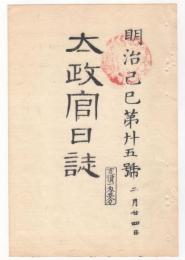 明治己巳第廿五號 二月廿四日
太政官日誌